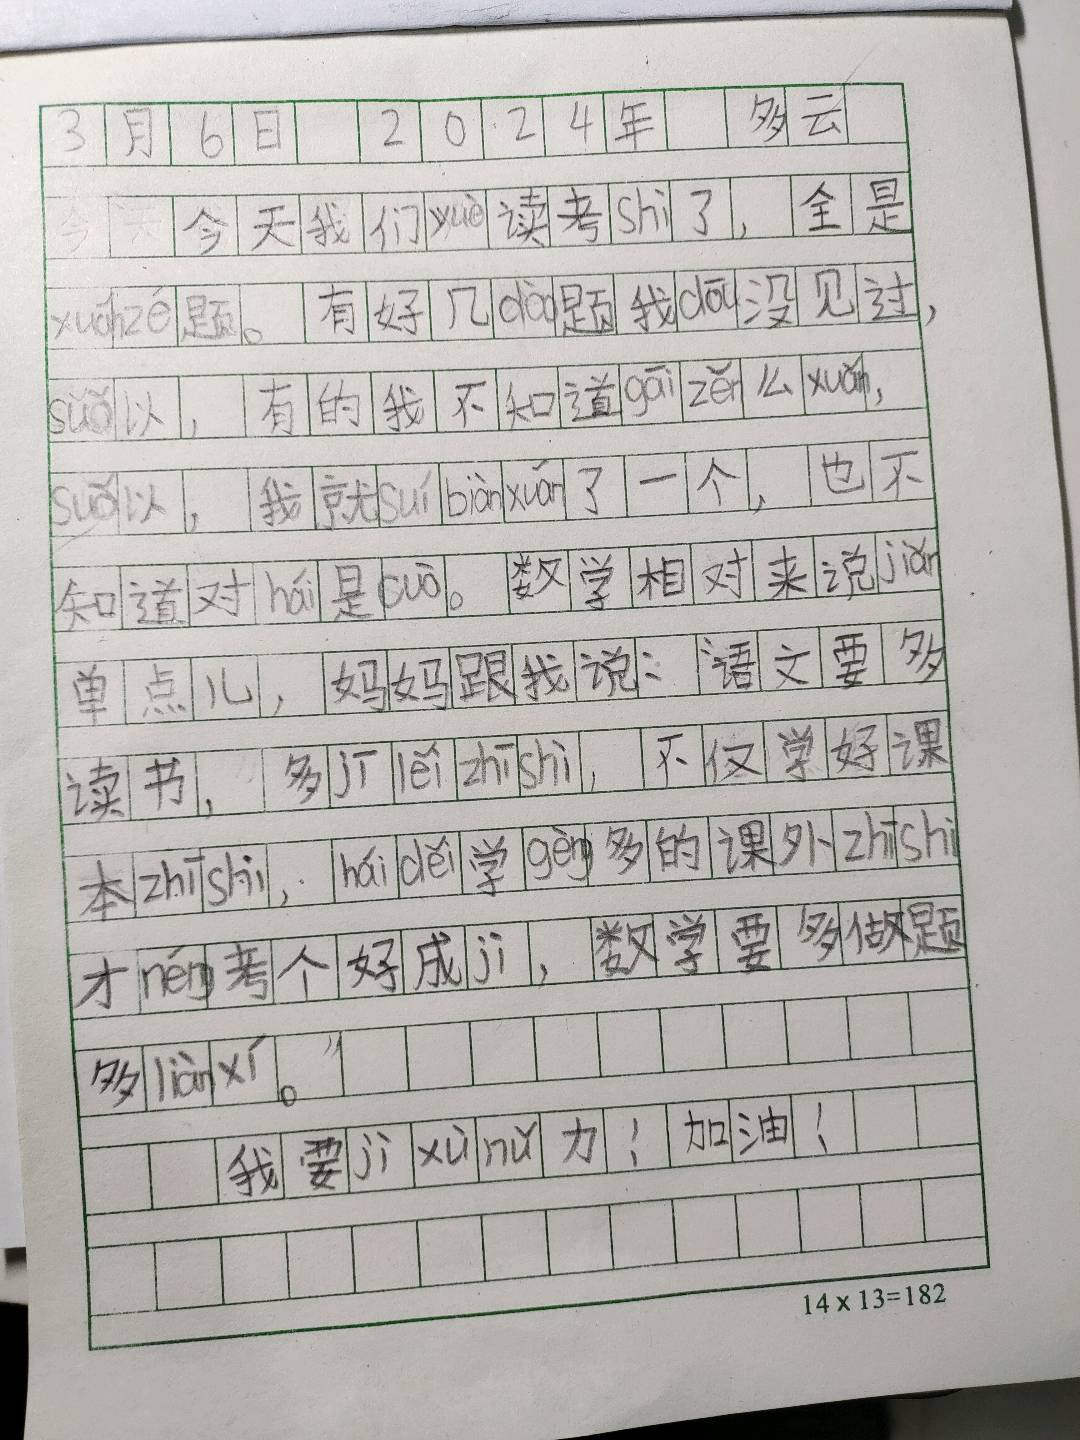 3月6日 2024年 多云
今天今天我们yuè读考shì了，全是
xuǎnzé题。有好几dào题我dōu没见过，
suǒ以，有的我不知道gāi zěn么xuǎn，
suǒ以，我就suí biàn xuǎn了一个，也不
知道对hái是cuò。数学相对来说jiǎn
单点儿，妈妈跟我说：语文要多
读书，多jī lěi zhī shi，不仅学好课
本zhī shi，hái děi学gèng多的课外zhī shi
才néng考个好成jì，数学要多做题
多liàn xí。”
我要jì xù nǔ力！加油！
14 x 13=182